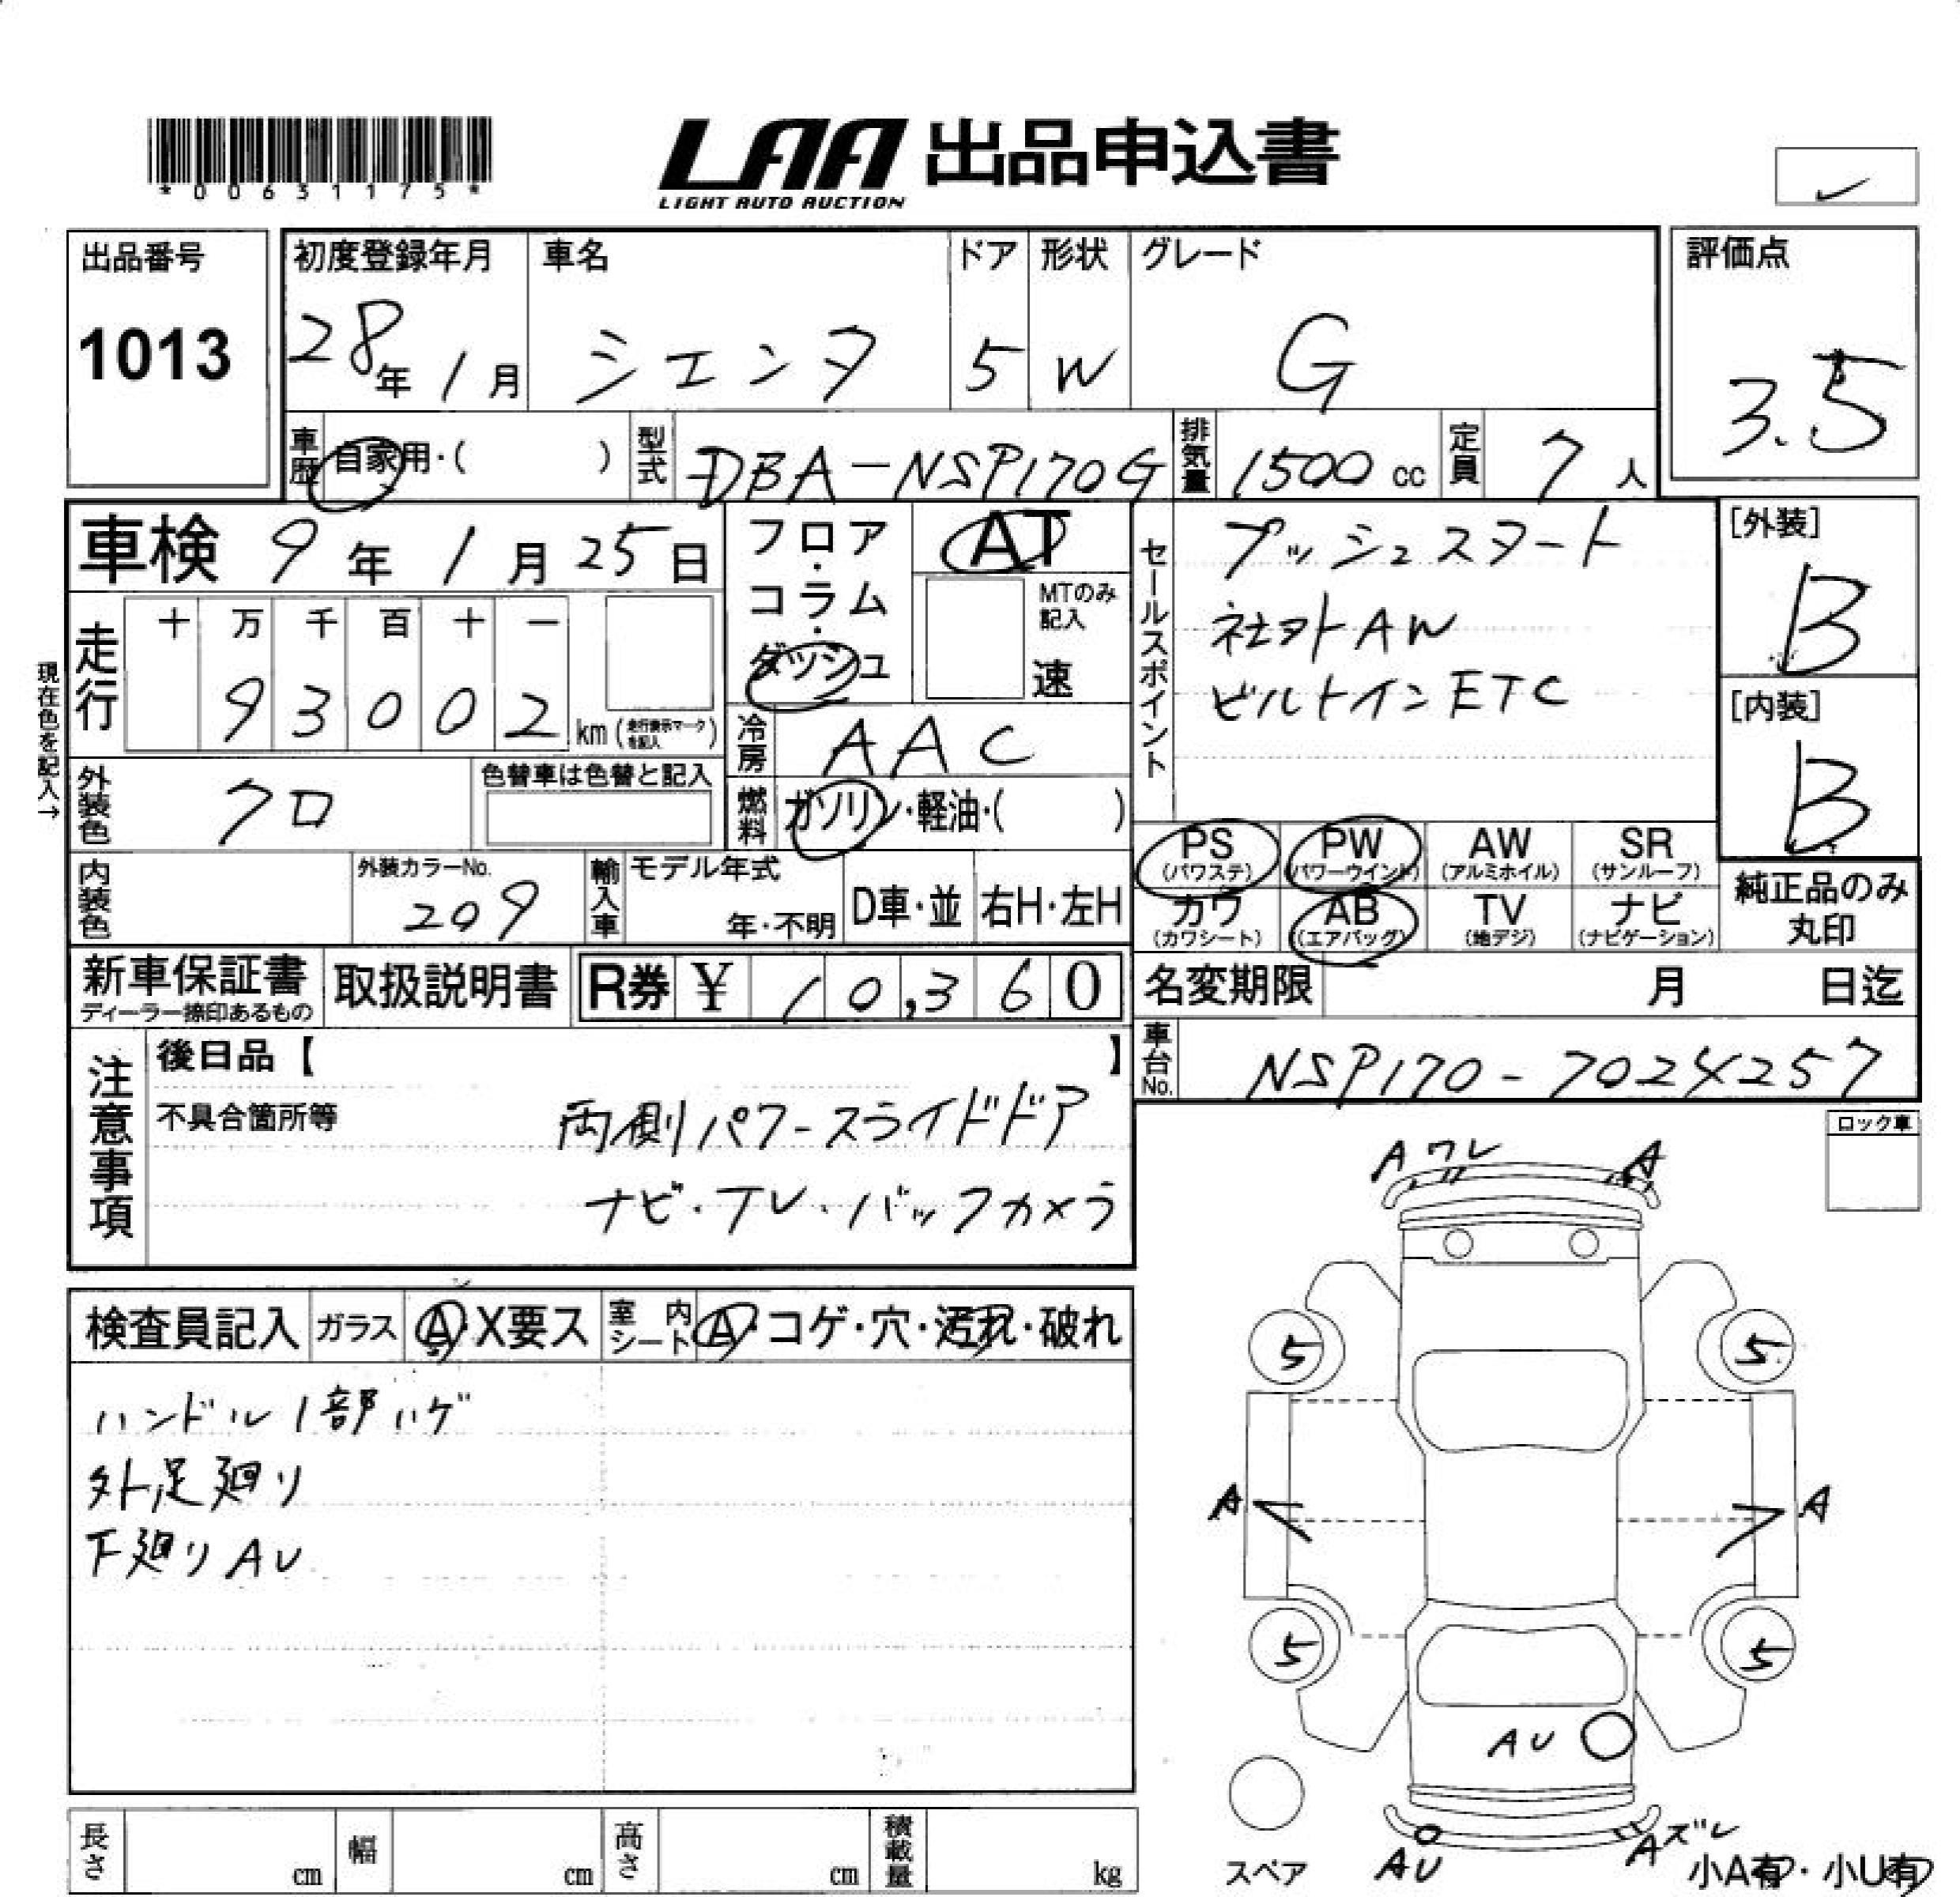 *00631175*
LAA 出品申込書
LIGHT AUTO AUCTION
出品番号
1013
初度登録年月
28年 1月
車名
シエンタ
ドア
5
形状
W
グレード
G
評価点
3.5
車歴 自家用・( )
型式 DBA-NSP170G
排気量 1500 cc
定員 7人
車検 9年 1月 25日
フロア・コラム・ダッシュ
AT
MTのみ記入
速
セールスポイント
プッシュスタート
社外AW
ビルトインETC
[外装]
B
[内装]
B
現在色を記入→
走行
十 万 千 百 十 一
93002
km(走行表示マークを記入)
冷房 AAC
外装色 クロ
色替車は色替と記入
燃料 ガソリン・軽油・( )
PS (パワステ)
PW (パワーウインド)
AW (アルミホイル)
SR (サンルーフ)
カワ (カワシート)
AB (エアバッグ)
TV (地デジ)
ナビ (ナビゲーション)
純正品のみ丸印
内装色
外装カラーNo.
209
輸入車
モデル年式
年・不明
D車・並
右H・左H
新車保証書
ディーラー捺印あるもの
取扱説明書
R券 ¥ 10,360
名変期限 月 日迄
車台No. NSP170-7024257
注意事項
後日品【 】
不具合箇所等
両側パワースライドドア
ナビ・TV・バックカメラ
ロック車
検査員記入
ガラス A・X要ス
室内シート A・コゲ・穴・汚れ・破れ
ハンドル1部ハゲ
外足廻り
下廻りAU
A ワレ
A
5
5
A
A
5
5
AU
AU
Aズレ
スペア
小A有・小U有
長さ cm
幅 cm
高さ cm
積載量 kg